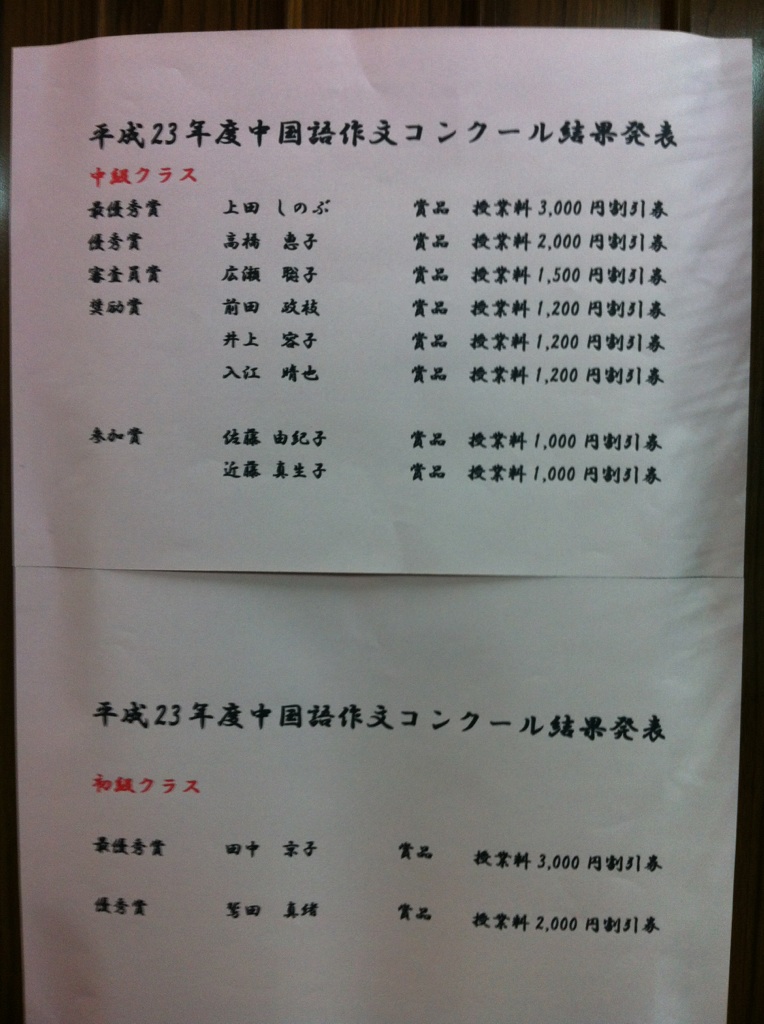 平成23年度中国語作文コンクール結果発表
中級クラス
最優秀賞 上田 しのぶ 賞品 授業料3,000円割引券
優秀賞 高橋 恵子 賞品 授業料2,000円割引券
審査員賞 広瀬 聡子 賞品 授業料1,500円割引券
奨励賞 前田 政枝 賞品 授業料1,200円割引券
井上 容子 賞品 授業料1,200円割引券
入江 晴也 賞品 授業料1,200円割引券
参加賞 佐藤 由紀子 賞品 授業料1,000円割引券
近藤 真生子 賞品 授業料1,000円割引券
平成23年度中国語作文コンクール結果発表
初級クラス
最優秀賞 田中 京子 賞品 授業料3,000円割引券
優秀賞 鷲田 真緒 賞品 授業料2,000円割引券